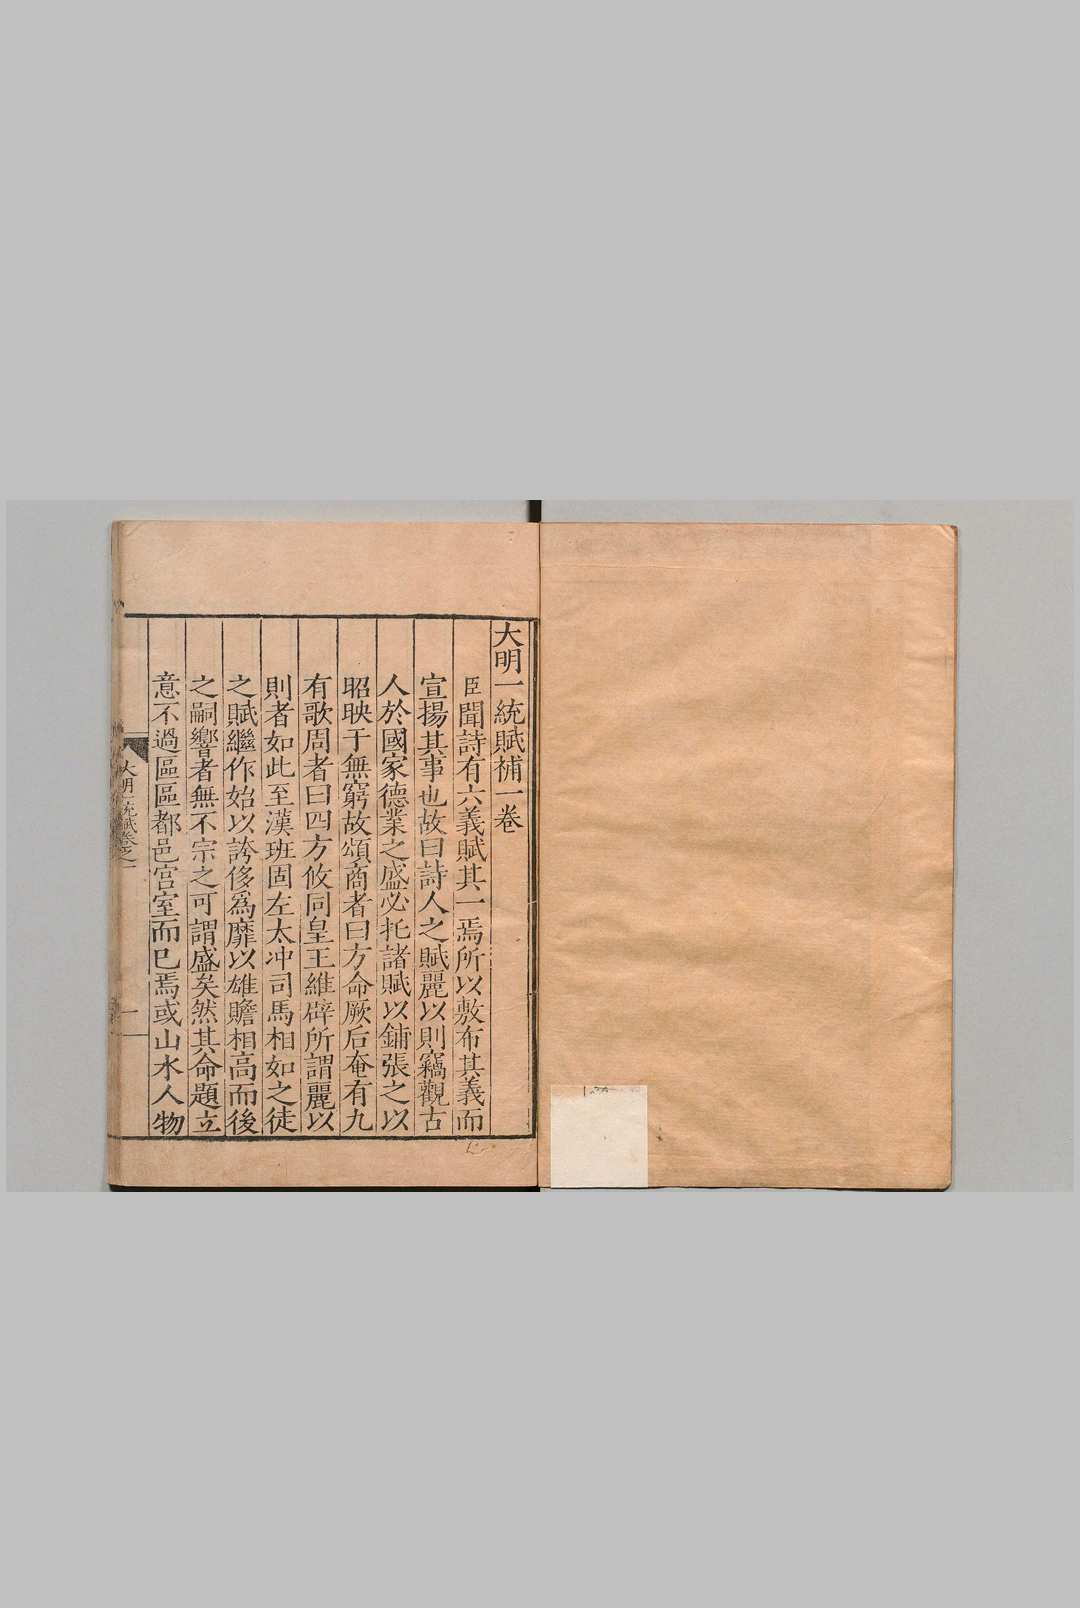 大明一統賦補一卷
臣聞詩有六義賦其一焉所以敷布其義而
宣揚其事也故曰詩人之賦麗以則竊觀古
人於國家德業之盛必托諸賦以鋪張之以
昭映于無窮故頌商者曰方命厥后奄有九
有歌周者曰四方攸同皇王維辟所謂麗以
則者如此至漢班固左太冲司馬相如之徒
之賦繼作始以誇侈爲靡以雄贍相高而後
之嗣響者無不宗之可謂盛矣然其命題立
意不過區區都邑宮室而已焉或山水人物
大明一統賦卷之一
一